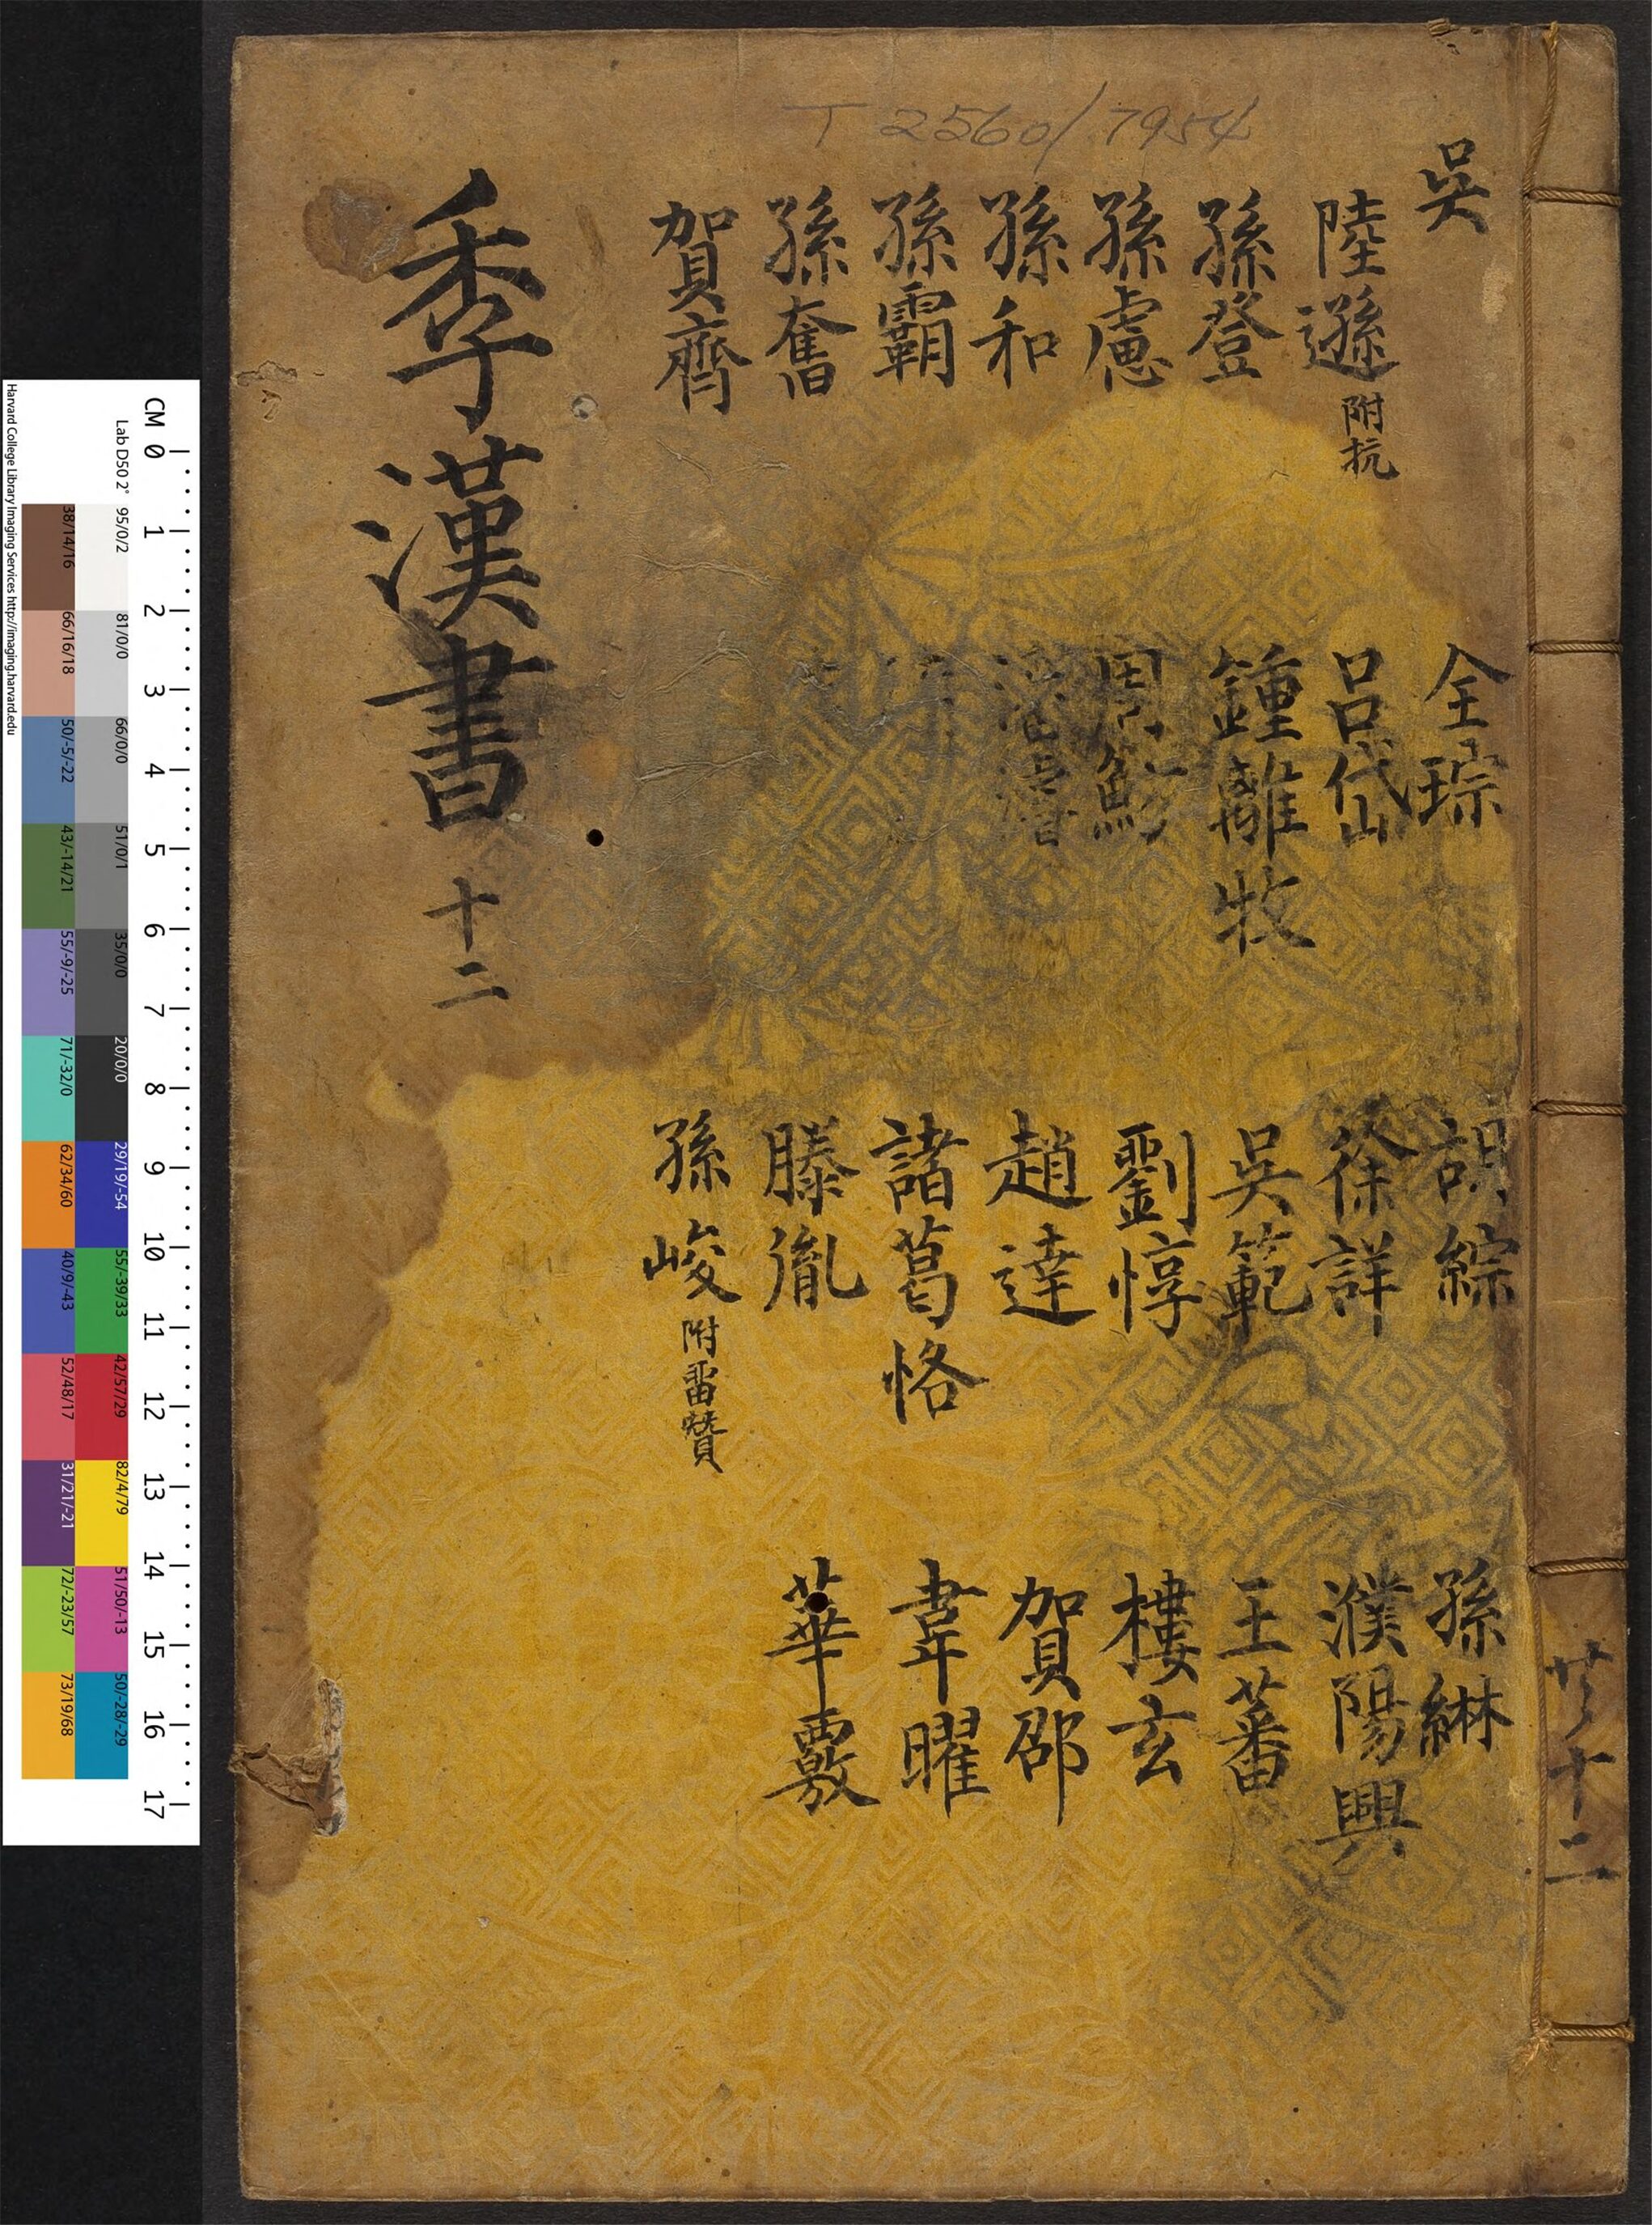 T 2560/7954
吳
陸遜 附抗
孫登
孫慮
孫和
孫霸
孫奮
賀齊
全琮
呂岱
鍾離牧
周魴
潘濬
胡綜
徐詳
吳範
劉惇
趙達
諸葛恪
滕胤
孫峻 附留贊
孫綝
濮陽興
王蕃
樓玄
賀邵
韋曜
華覈
季漢書 十二
共十二
CM 0 1 2 3 4 5 6 7 8 9 10 11 12 13 14 15 16 17
Lab D50 2° 95/0/2 81/0/0 66/0/0 51/0/1 35/0/0 20/0/0 29/19/-54 55/-39/33 42/57/29 82/4/79 51/50/-13 50/-28/-29
38/14/16 66/16/18 50/-5/-22 43/-14/21 55/-9/-25 71/-32/0 62/34/60 40/9/-43 52/48/17 31/21/-21 72/-23/57 73/19/68
Harvard College Library Imaging Services http://imaging.harvard.edu